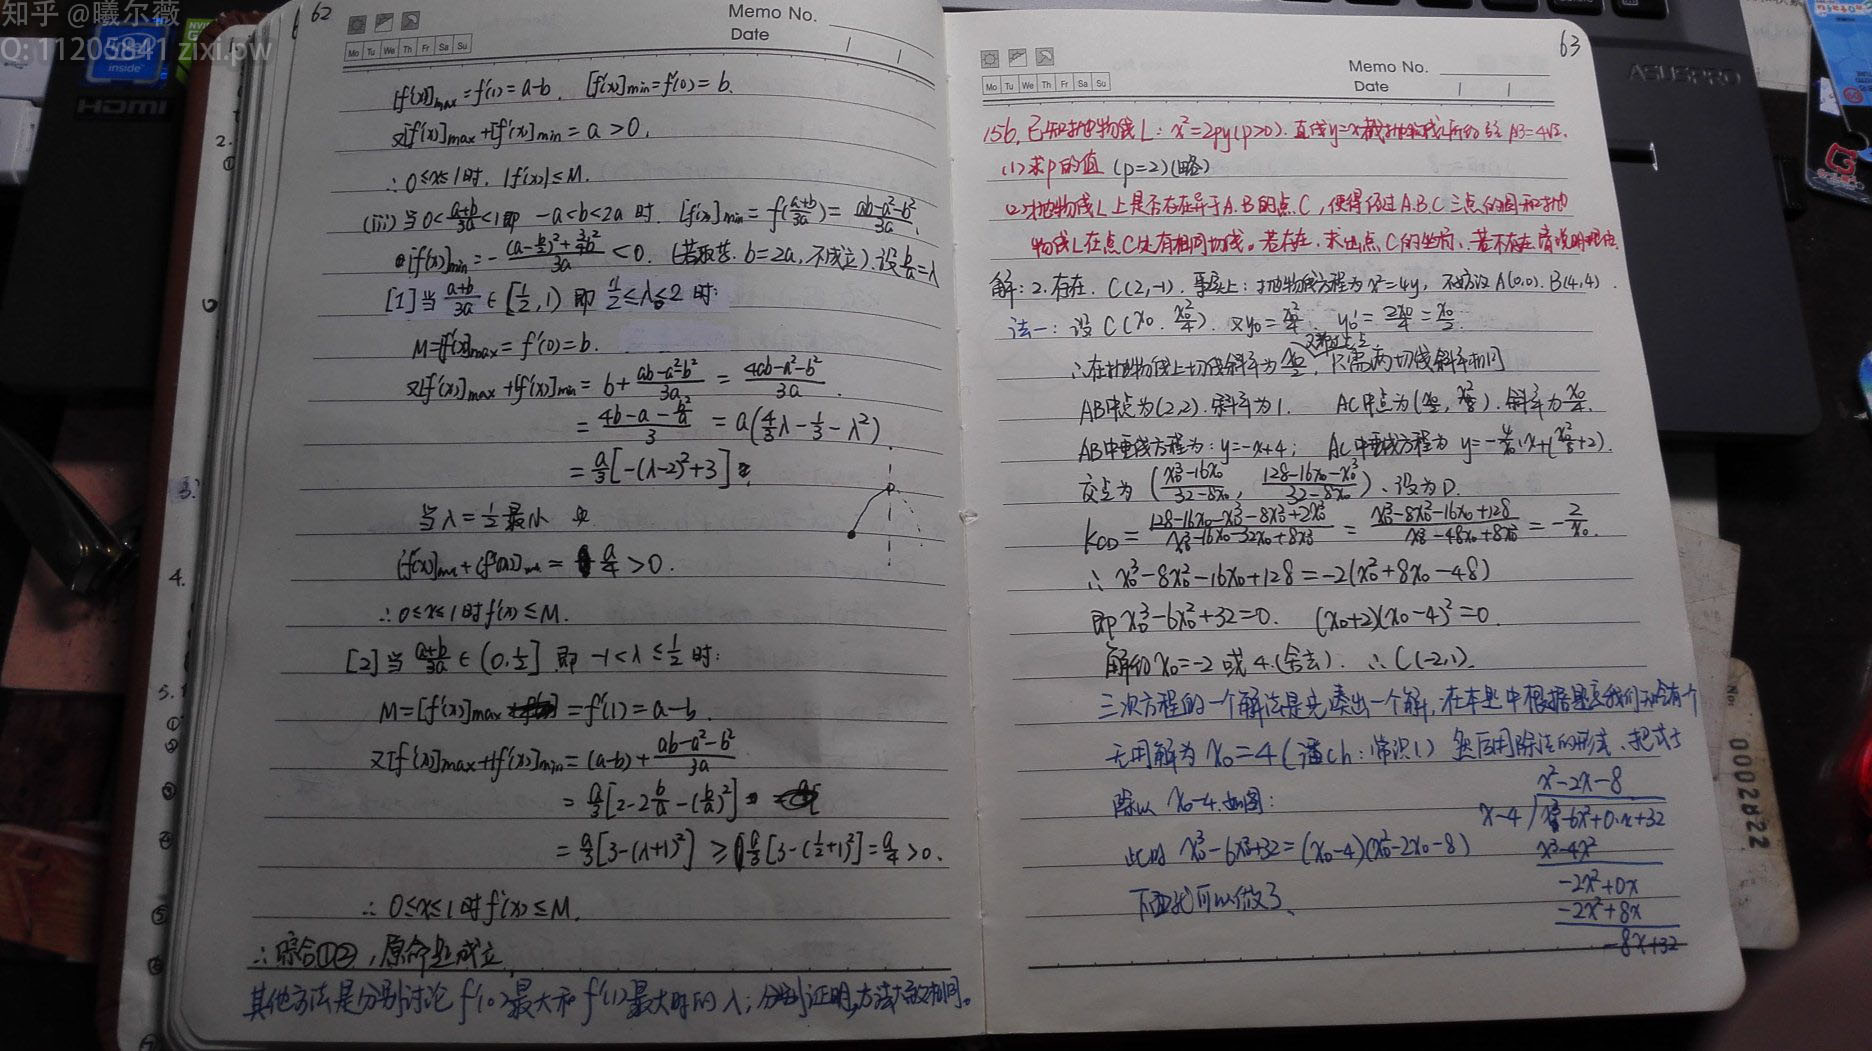 知乎 @曦尔薇
Q: 11205841 zixi.pw
intel
inside
HDMI
62
Memo No.
Date
Mo Tu We Th Fr Sa Su
[f'(x)]max = f'(1) = a-b. [f'(x)]min = f'(0) = b.
又[f'(x)]max+[f'(x)]min = a > 0.
∴ 0≤x≤1时, |f'(x)|≤M.
(iii) 当 0<(a+b)/3a<1即 -a<b<2a 时. [f'(x)]min = f'((a+b)/3a) = (ab-a²-b²)/3a.
[f'(x)]min = -((a-b/2)²+3/4b²)/3a < 0. (若取营. b=2a, 不成立). 设b/a=λ
[1] 当 (a+b)/3a ∈ [1/2, 1) 即 1/2≤λ≤2 时:
M=[f'(x)]max = f'(0) = b.
又[f'(x)]max+[f'(x)]min = b + (ab-a²-b²)/3a = (4ab-a²-b²)/3a.
= (4b-a-b²/a)/3 = a(4/3λ-1/3-λ²)
= a/3[-(λ-2)²+3]
当λ=1/2 最小
[f'(x)]max+[f'(x)]min = a/4 > 0.
∴ 0≤x≤1时f'(x)≤M.
[2] 当 (a+b)/3a ∈ (0, 1/2] 即 -1<λ≤1/2 时:
M=[f'(x)]max = f'(1) = a-b.
又[f'(x)]max+[f'(x)]min = (a-b) + (ab-a²-b²)/3a
= a/3[2-2b/a-(b/a)²]
= a/3[3-(λ+1)²] ≥ a/3[3-(1/2+1)²] = a/4 > 0.
∴ 0≤x≤1时f'(x)≤M.
∴综合①②, 原命题成立
其他方法是分别讨论f'(0)最大和f'(1)最大时的λ; 分别证明, 方法大致相同。
63
Memo No.
Date
Mo Tu We Th Fr Sa Su
ASUSPRO
156. 已知抛物线L: x²=2py(p>0). 直线y=x截抛物线L所得弦 AB=4√2.
(1) 求p的值 (p=2)(略)
(2) 抛物线L上是否存在异于A.B的点C, 使得经过A.B.C三点的圆和抛
物线L在点C处有相同切线。若存在, 求出点C的坐标, 若不存在请说明理由.
解: 2. 存在. C(2,-1). 事实上: 抛物线方程为x²=4y, 不妨设A(0,0). B(4,4).
法一: 设C(x₀, x₀²/4). 又y₀=x₀²/4, y₀'=2x₀/4=x₀/2.
∴在抛物线上切线斜率为x₀/2, 只需两切线斜率相同
AB中点为(2,2). 斜率为1. AC中点为(x₀/2, x₀²/8). 斜率为x₀/4.
AB中垂线方程为: y=-x+4; AC中垂线方程为 y=-4/x₀·x+(x₀²/8+2).
交点为 ((x₀³-16x₀)/(32-8x₀), (128-16x₀-x₀³)/(32-8x₀)). 设为D.
KCD = (128-16x₀-x₀³-8x₀²+2x₀³)/(x₀³-16x₀-32x₀+8x₀²) = (x₀³-8x₀²-16x₀+128)/(x₀³-48x₀+8x₀²) = -2/x₀.
∴ x₀³-8x₀²-16x₀+128=-2(x₀²+8x₀-48)
即x₀³-6x₀²+32=0. (x₀+2)(x₀-4)²=0
解得x₀=-2 或 4.(舍去). ∴ C(-2,1).
三次方程的一个解法是先凑出一个解, 在本题中根据题意我们知会有个
无用解为x₀=4 (潘ch: 常识1) 然后用除法的形式, 把式子
除以 x₀-4. 如图:
x²-2x-8
x-4 x³-6x²+0·x+32
x³-4x²
-2x²+0x
-2x²+8x
-8x+32
此时 x₀³-6x₀²+32=(x₀-4)(x₀²-2x₀-8)
下面就可以做了.
No.
0002822
2.
①
3.
4.
5.
①
②
③
④
⑤
⑥